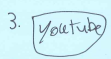 3. Youtube